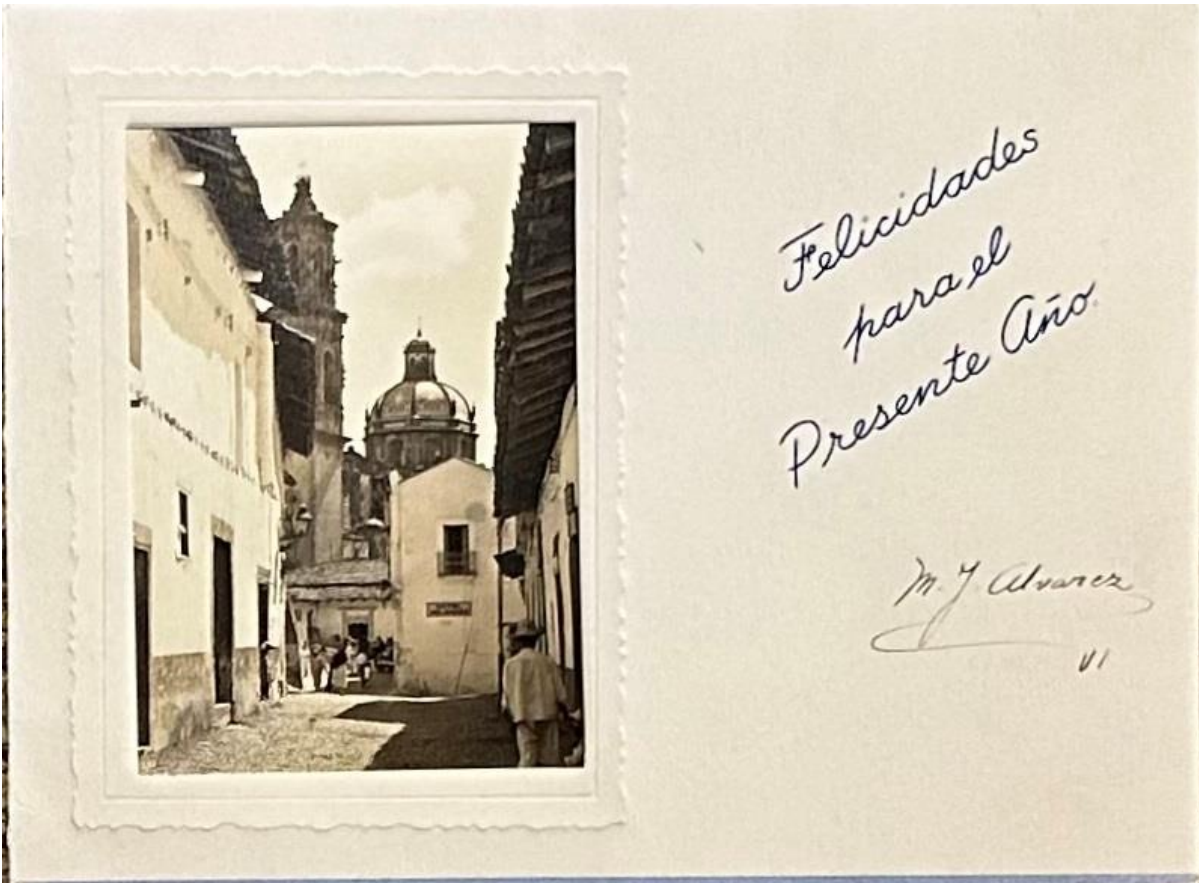 Felicidades
para el
Presente Año.
M. J. Alvarez
VI